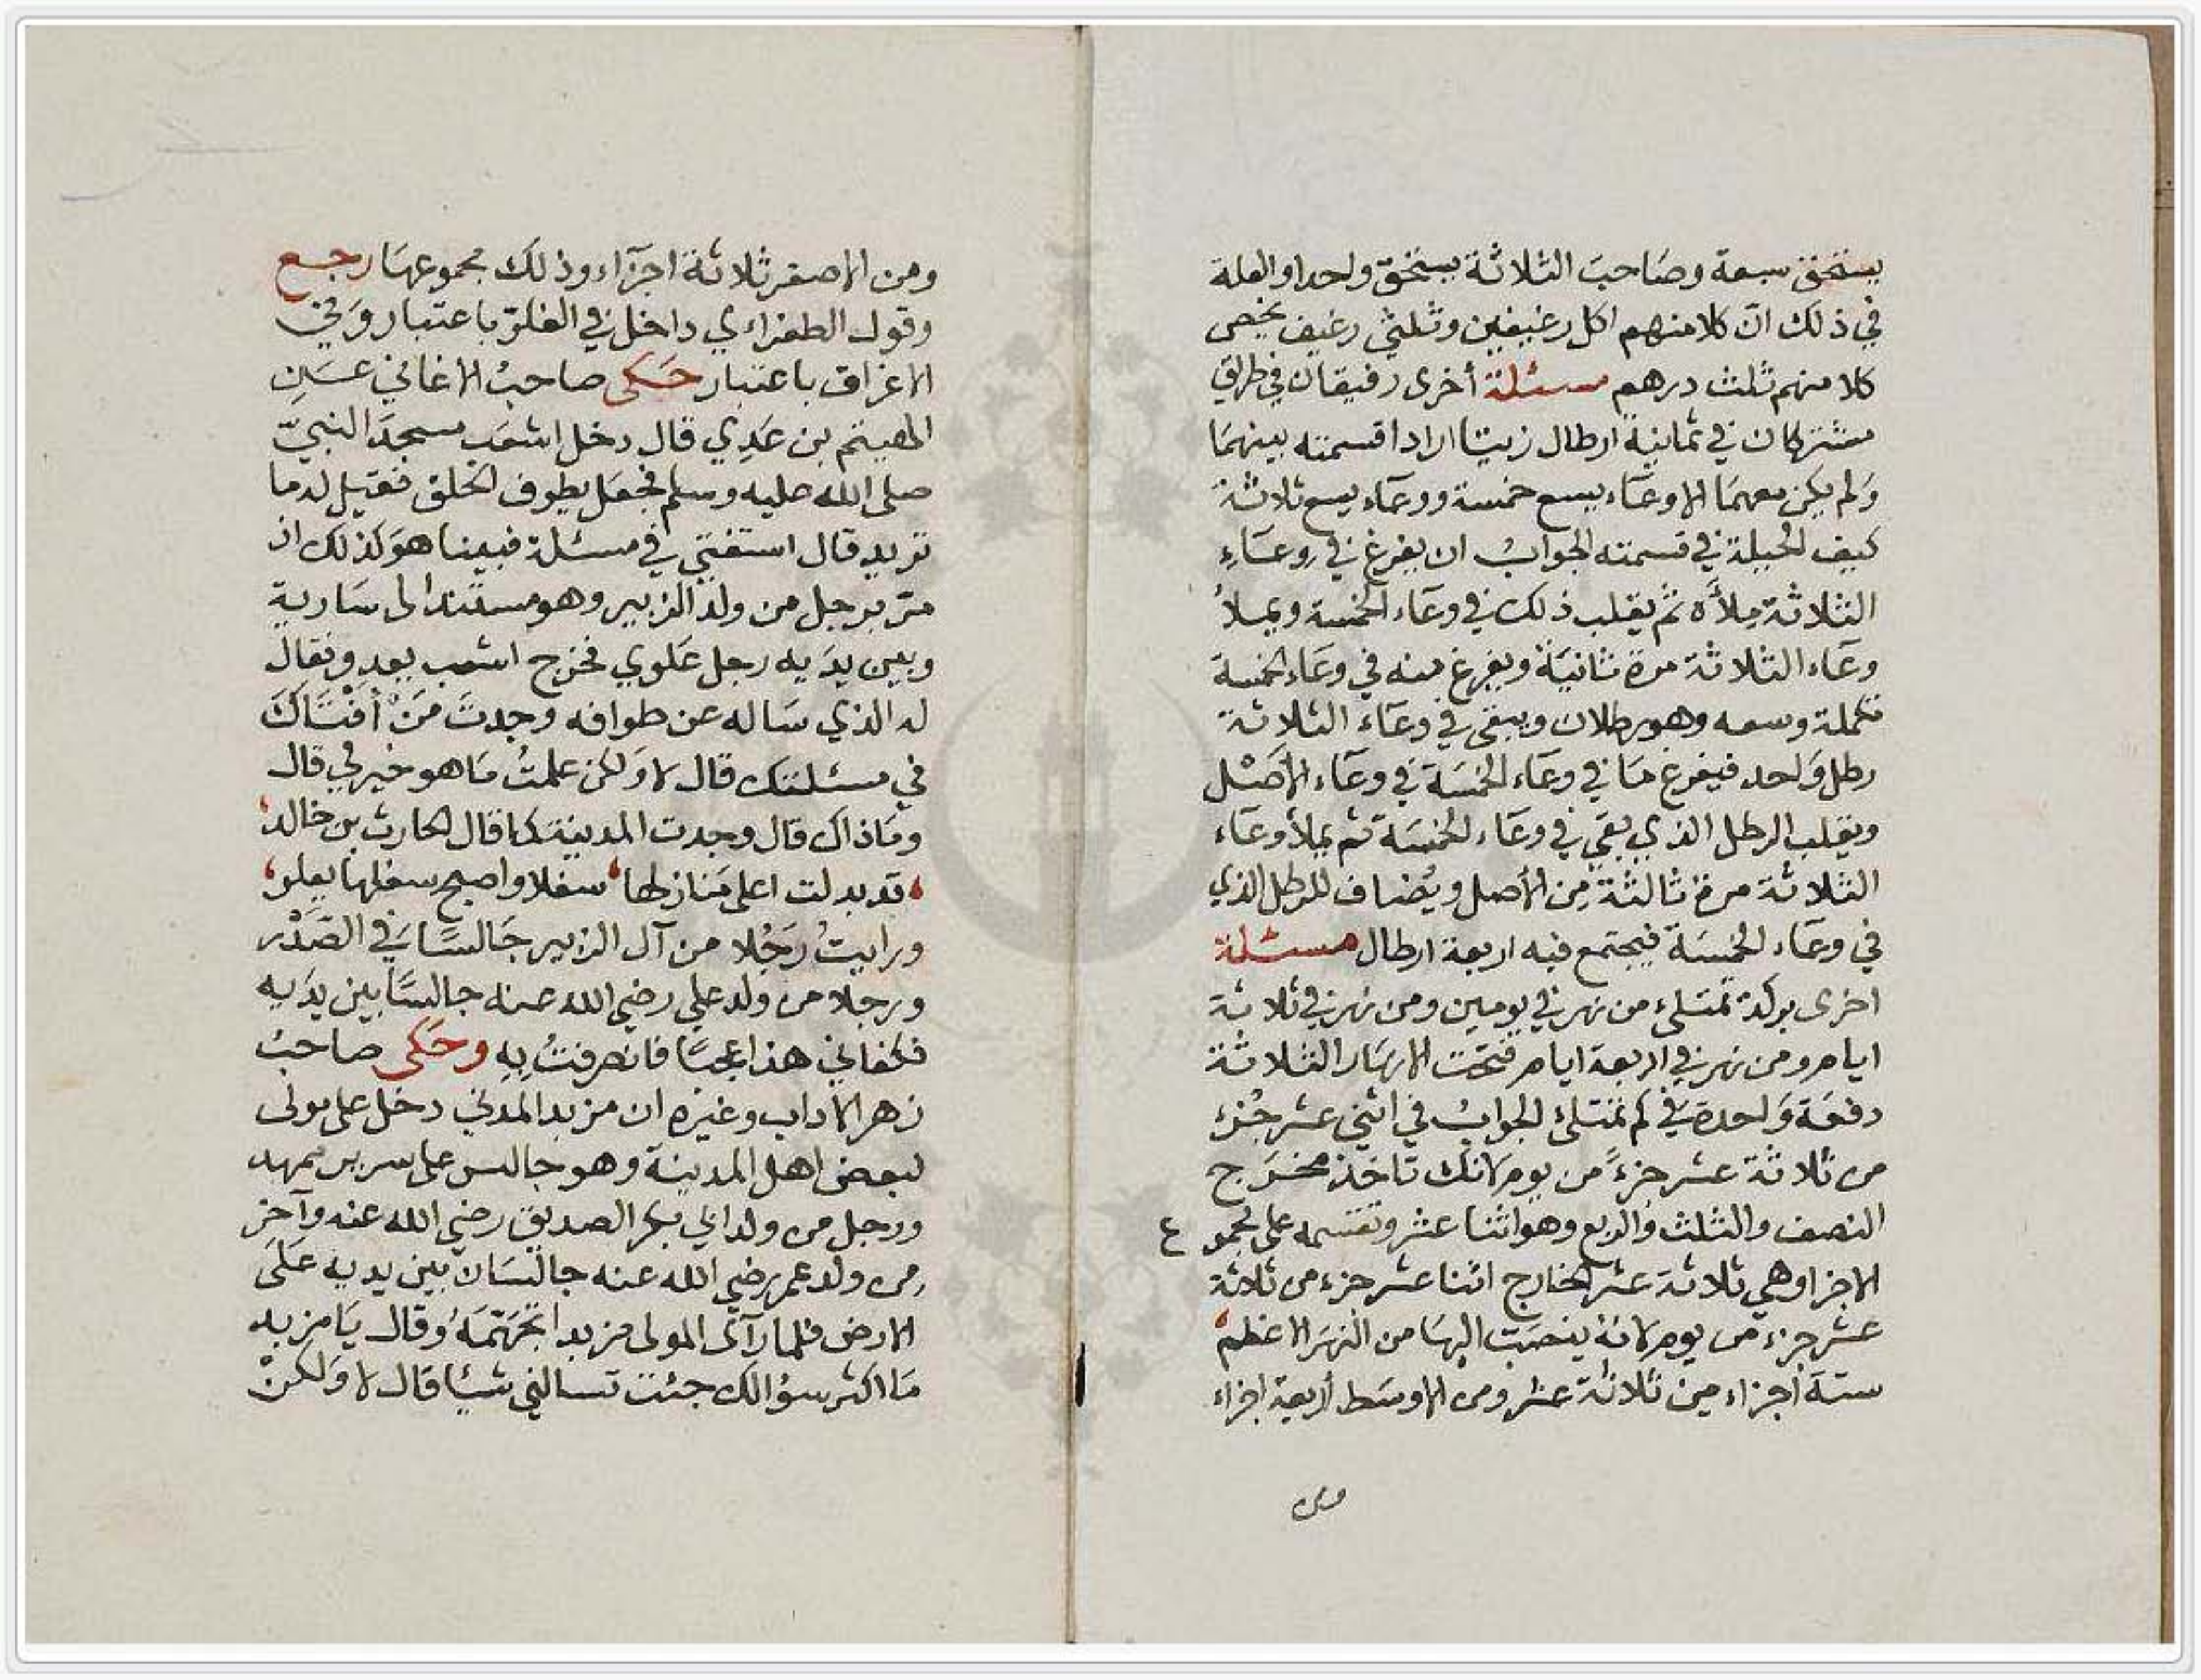 يستحق سبعة وصَاحبَ الثلاثة يستحق واحدا والعلة
في ذلك انّ كلا منهم اكل رغيفين وثلثي رغيف يخص
كلا منهم ثلث درهم مسئلة أخرى رفيقان في طريق
مشتركان في ثمانية ارطال زيتا ارادا قسمته بينهمَا
وَلم يكن معهمَا الا وعَاء يسع خمسة ووعَاء يسع ثلاثة
كيف الحيلة في قسمته الجوابُ ان يفرغ في وعَاءِ
الثلاثة مِلأَه ثم يقلب ذلك في وعَاء الخمسة ويملأُ
وعَاء الثلاثة مرة ثانيَة ويفرغ منه في وعَاء الخمسة
تكملة وسعه وهو رطلان ويبقى في وعَاء الثلاثة
رطل وَاحد فيفرغ مَا في وعَاء الخمسَة في وعَاء الأصَل
ويقلب الرطل الذي بقي في وعَاء الخمسَة ثم يملأ وعَاء
الثلاثة مرة ثالثة مِن الأصل ويُضاف للرطل الذي
في وعَاء الخمسَة فيجتمع فيه اربعة ارطال مسئلة
اخرى بركة تمتلئ من نهر في يومين ومن نهر في ثلاثة
ايام ومن نهر في اربعة ايام فتحت الانهَار الثلاثة
دفعَة وَاحدة في كم تمتلئ الجوابُ في اثني عشر جُزء
من ثلاثة عشر جزءً من يوم لانك تاخذ مخرَج
النصف والثلث والربع وهو اثنا عشر وتقسمه على مجموع
الاجزا وهي ثلاثة عشر الخارج اثنا عشر جزء من ثلاثة
عشر جزء من يوم لانه ينصَبّ اليهَا من النهَر الاعظم
ستة أجزاء مِن ثلاثة عشر ومن الاوسَط أربعة اجزاء
ومن
ومن الاصغر ثلاثة اجزَآء وذلكَ مجموعهَا رجع
وقول الطغراءي داخل في الغلوّ باعتبار وَفي
الاغراق باعتبار حَكى صاحبُ الاغاني عَنِ
الهيثم بن عَدِي قال دخل اشعَب مسجدَ النبيّ
صلى الله عليه وسلم فجعَل يطوف الخلق فقيل لهُ ما
تريد قال استفتي في مسئلة فبينا هوَ كذلك اذ
مرّ برجل من ولد الزبير وهو مستند الى سَارية
وبين يدَيه رجل عَلوي فخرج اشعب يعدو فقال
له الذي سَاله عن طوافه وجدتَ مَنْ أفْتَاكَ
في مسئلتك قال لا وَلكن علمتُ مَا هو خير لي قال
ومَا ذاك قال وجدت المدينة كما قال الحارث بن خالد
قد بدلت اعلى مَنازلها سفلا واصبح سفلها يعلو
ورايتُ رَجُلا من آل الزبير جَالسًا في الصَدْر
ورجلا من ولد علي رضي الله عنه جالسًا بين يدَيه
فكفاني هذا عجبًا فانصرفتُ بِهِ وحَكى صاحبُ
زهر الاداب وغيره ان مزبد المدني دخل على مولى
لبعض اهل المدينة وهو جالس على سرير ممهد
ورجل من ولد ابي بكر الصديق رضي الله عنه وآخر
من ولد عمر رضي الله عنه جالسَان بين يديه عَلى
الارض فلما رآى المولى مزبدا تجهّمَهُ وقال يَا مزبد
مَا اكثر سؤالك جئت تسالني شيئا قال لا وَلكنْ